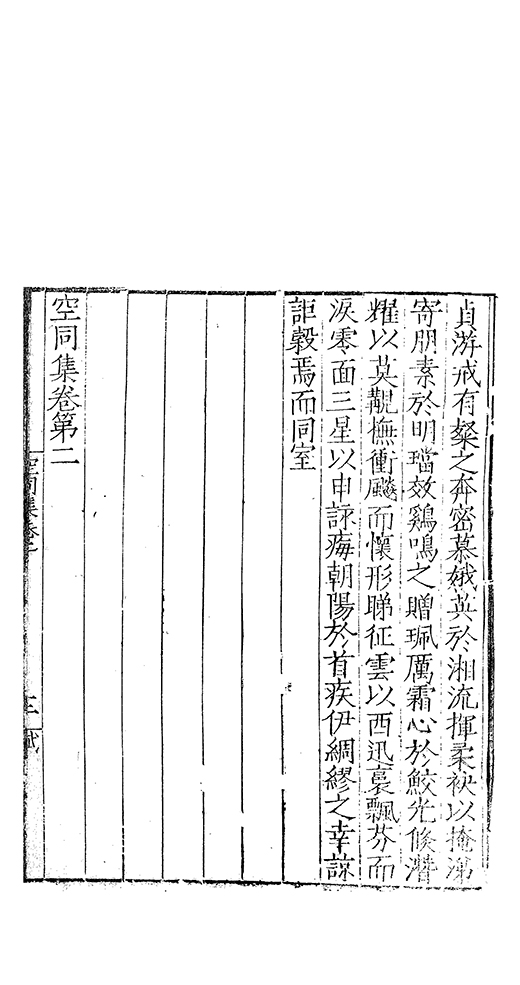 貞游戒有粲之奔密慕娥英於湘流揮柔袂以掩涕
寄朋素於明璫效鷄鳴之贈珮厲霜心於鮫光倏潛
耀以莫覯撫衝飈而懷形睇征雲以西迅裛飄芬而
淚零面三星以申詠痗朝陽於首疾伊綢繆之幸諒
詎穀焉而同室
空同集卷第二
空同集卷二
三
賦